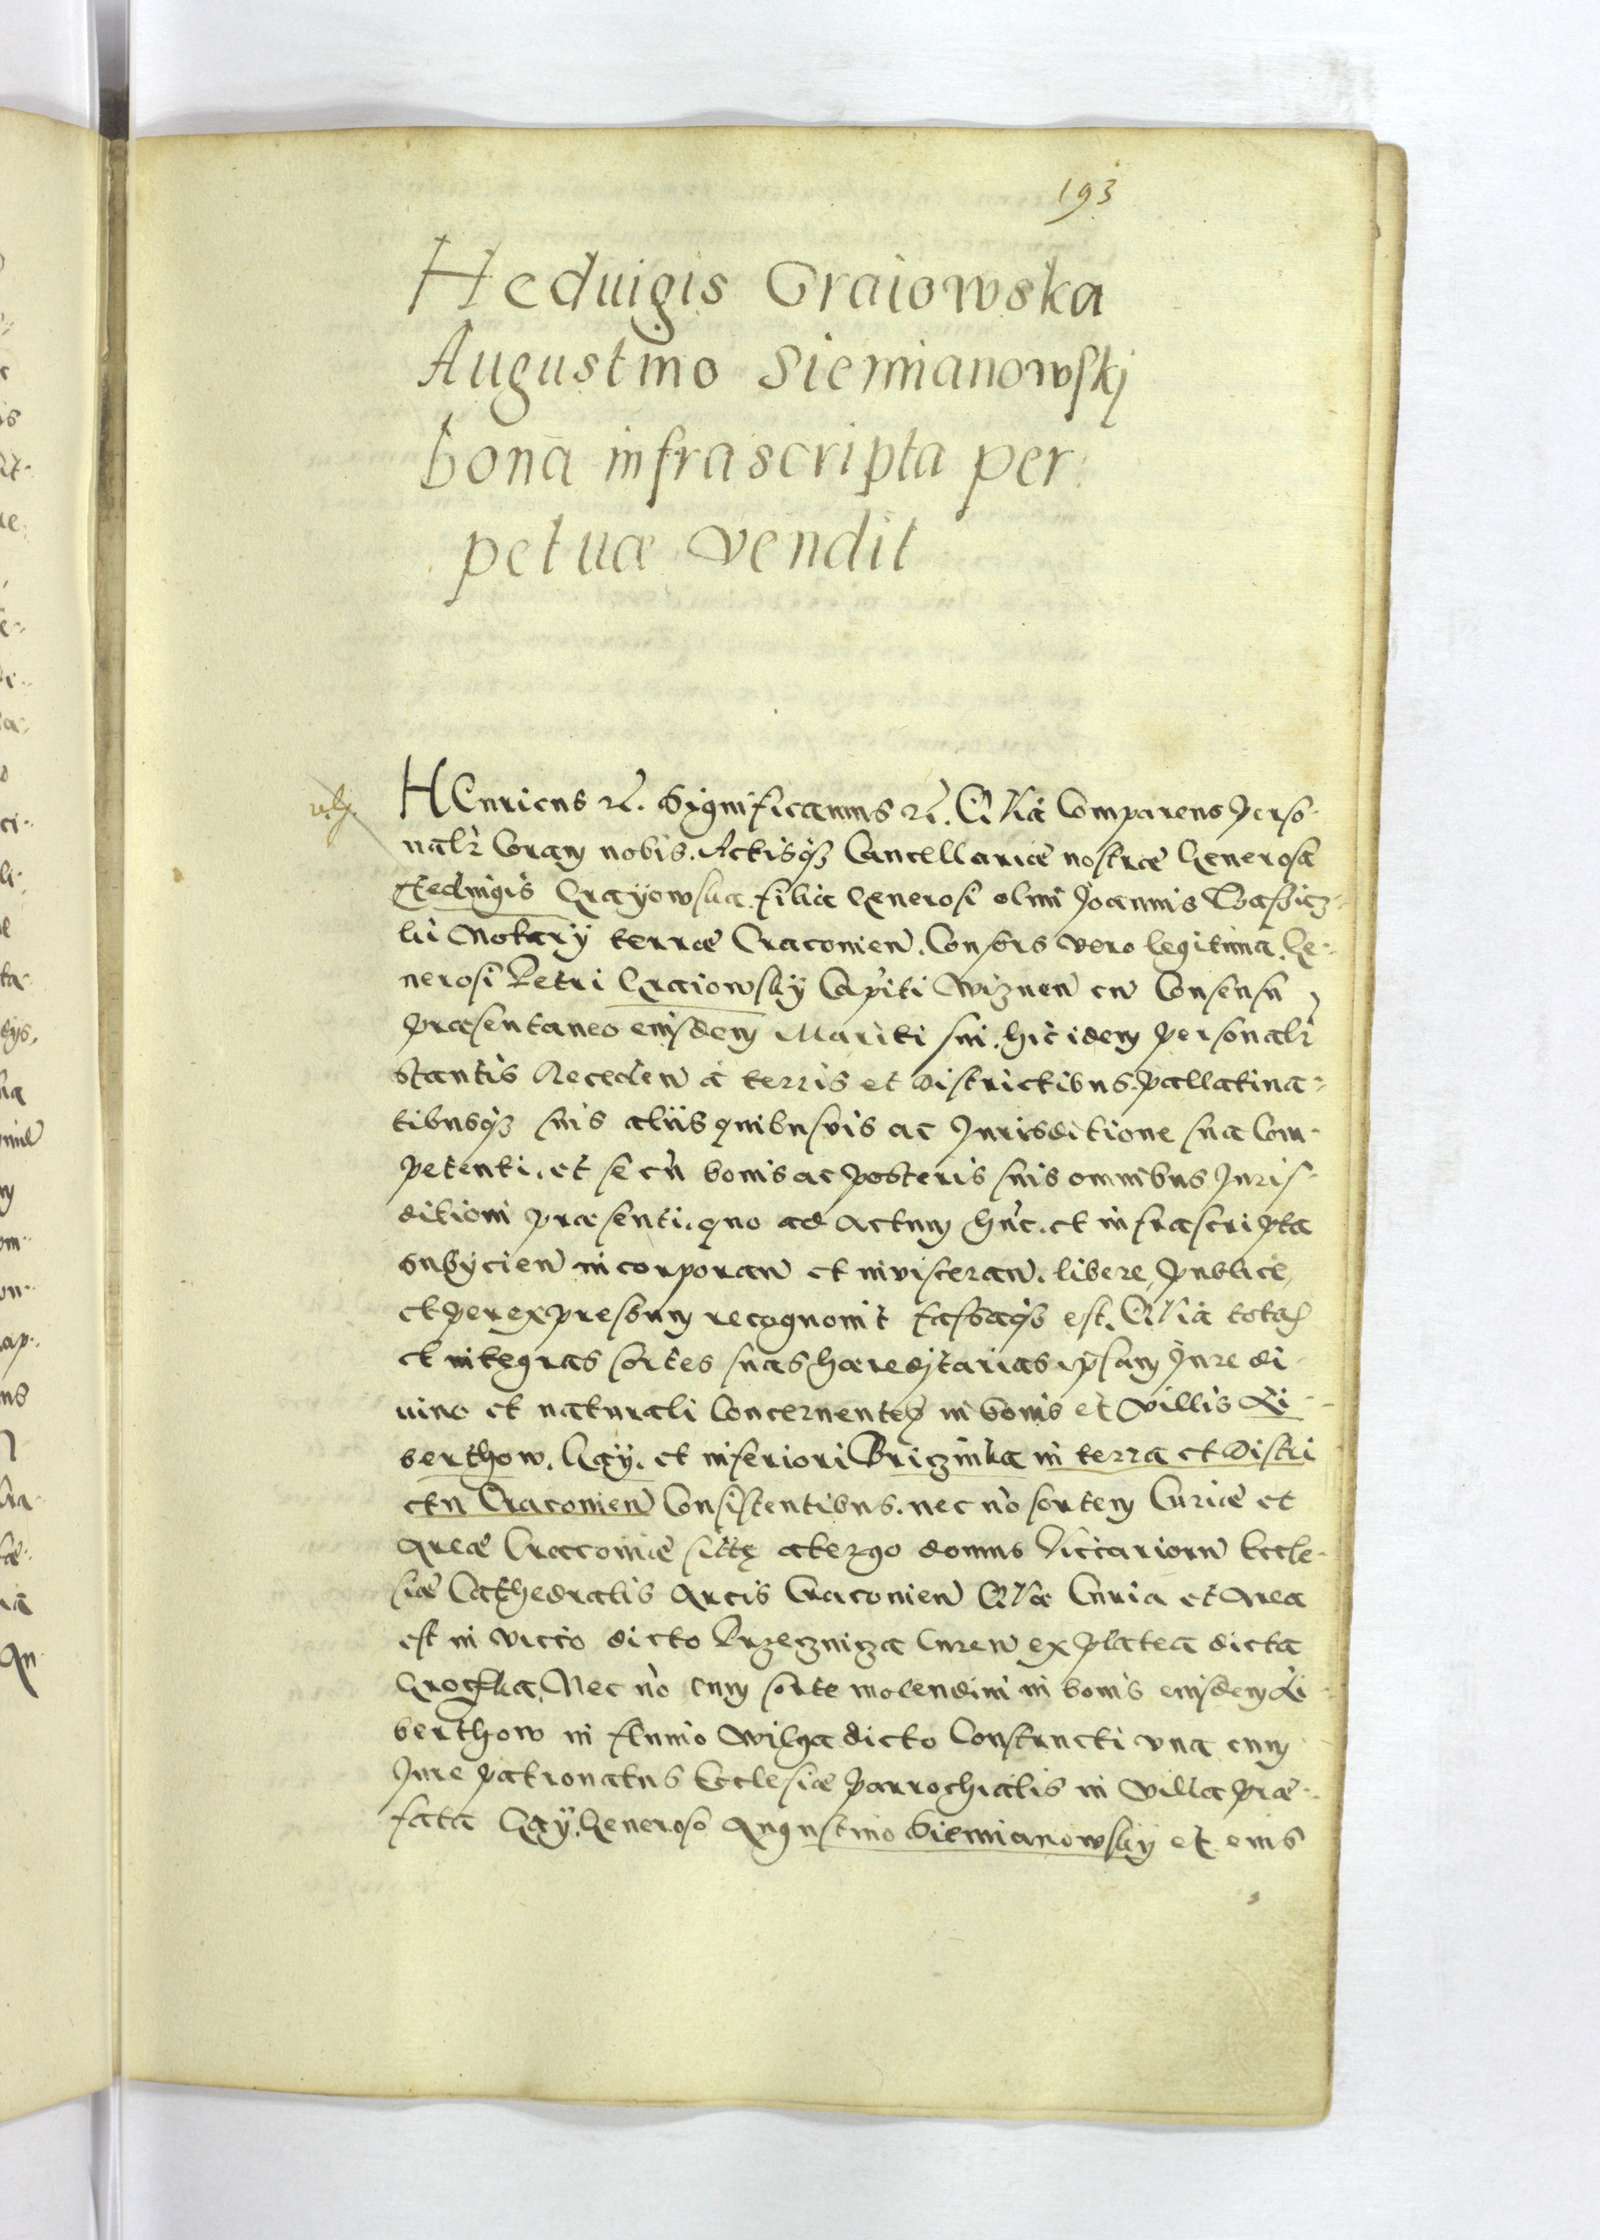 193
Heduigis Graiowska
Augustino Siemianowskj
bona infrascripta per
petuae vendit
HEnricus etc. Significamus etc. Quia Comparens Perso-
nalr Coram nobis. Actisq3 Cancellariae nostrae Generosa
Heduigis Grayowska filia Generosi olim Joannis
Notarÿ terrae Cracovien. Consors vero legitima. Ge-
nerosi Petri Graiowskÿ Capiti Wiznen cu Consensu
praesentaneo eiusdem Mariti sui. hic idem personalr
stantis Receden a terris et districtibus. pallatina-
tibusq3 suis aliis quibusvis ac Jurisditione sua Com-
petenti. et se cu bonis ac posteris suis omnibus Juris-
ditioni praesenti. quo ad actum hunc. et infrascripta
subÿcien incorporan et invisceran. libere, publice,
et per expressum recognovit fassaq3 est. Quia totas
et integras sortes suas haereditarias ipsam Jure di-
uino et naturali Concernentes in bonis et villis Li-
berthow. Gaÿ. et inferiori Brzezinka in terra et Distri
ctu Cracovien Consistentibus. nec no sortem Curiae et
areae Cracoviae sitae a tergo domus Vicariorum Eccle-
siae Cathedralis Arcis Cracovien Quae Curia et Area
est in vico dicto ex platea dicta
Grodska, Nec no cum sorte molendini in bonis eiusdem Li-
berthow in fluvio Wilga dicto Constructi una cum
Jure patronatus Ecclesiae Parrochialis in villa prae-
fata Gaÿ. Generoso Augustino Siemianowskÿ et eius